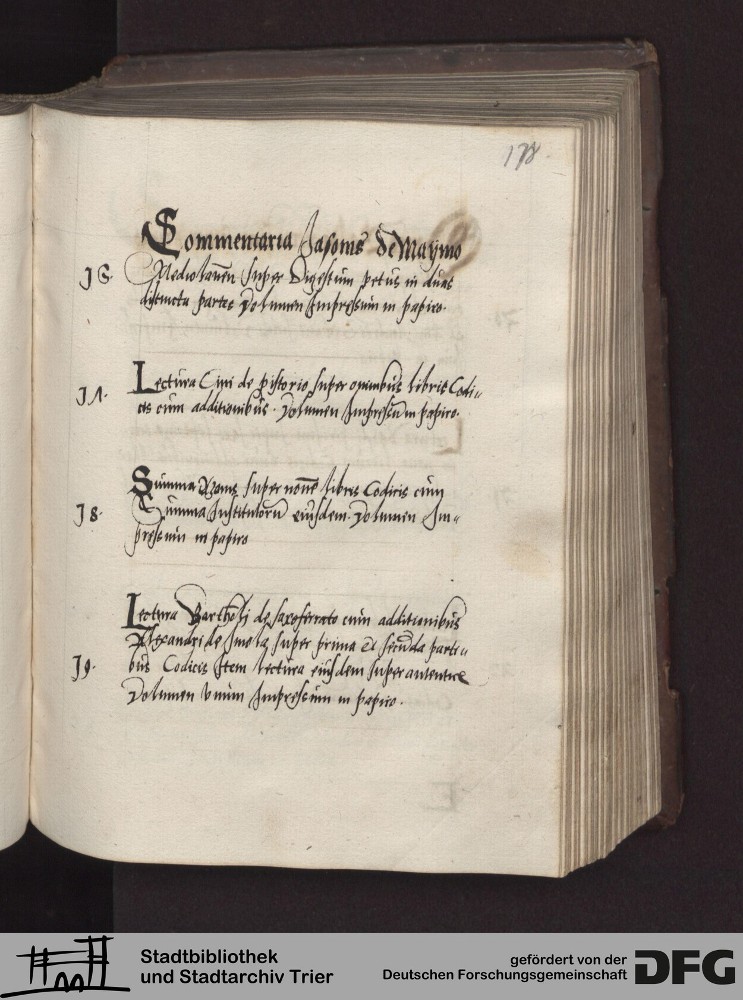 178.
Commentaria Jasonis de Mayno
J 6. Mediolanen̄ super Digestum vetus in duas
distincta partes Volumen Impressum in papiro.
J Λ. Lectura Cini de pistorio super omnibus libris Codi„
cis cum additionibus. Volumen Impressum in papiro.
Summa super nouē libros Codicis cum
J 8. Summa Institutorū eiusdem. Volumen Im„
pressum in papiro
Lectura Bartholi de saxoferrato cum additionibus
Alexandri de Imola super prima et secūda parti„
J 9. bus Codicis Item lectura eiusdem super autentice
Volumen vnum Impressum in papiro.
Stadtbibliothek
und Stadtarchiv Trier
gefördert von der
Deutschen Forschungsgemeinschaft
DFG